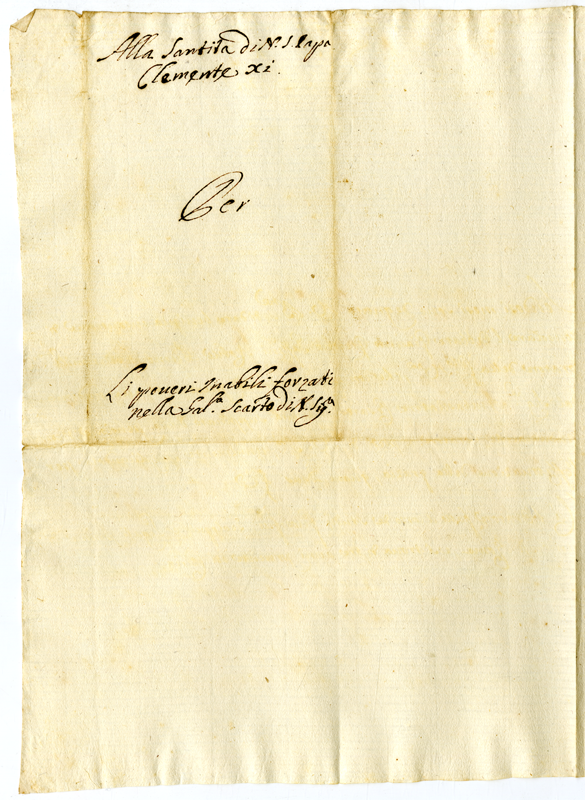 Alla Santità di N. S. Papa
Clemente Xi.
Per
Li poueri Inabili forzati
nella Gal.ª Scarto di N. Sig.ra